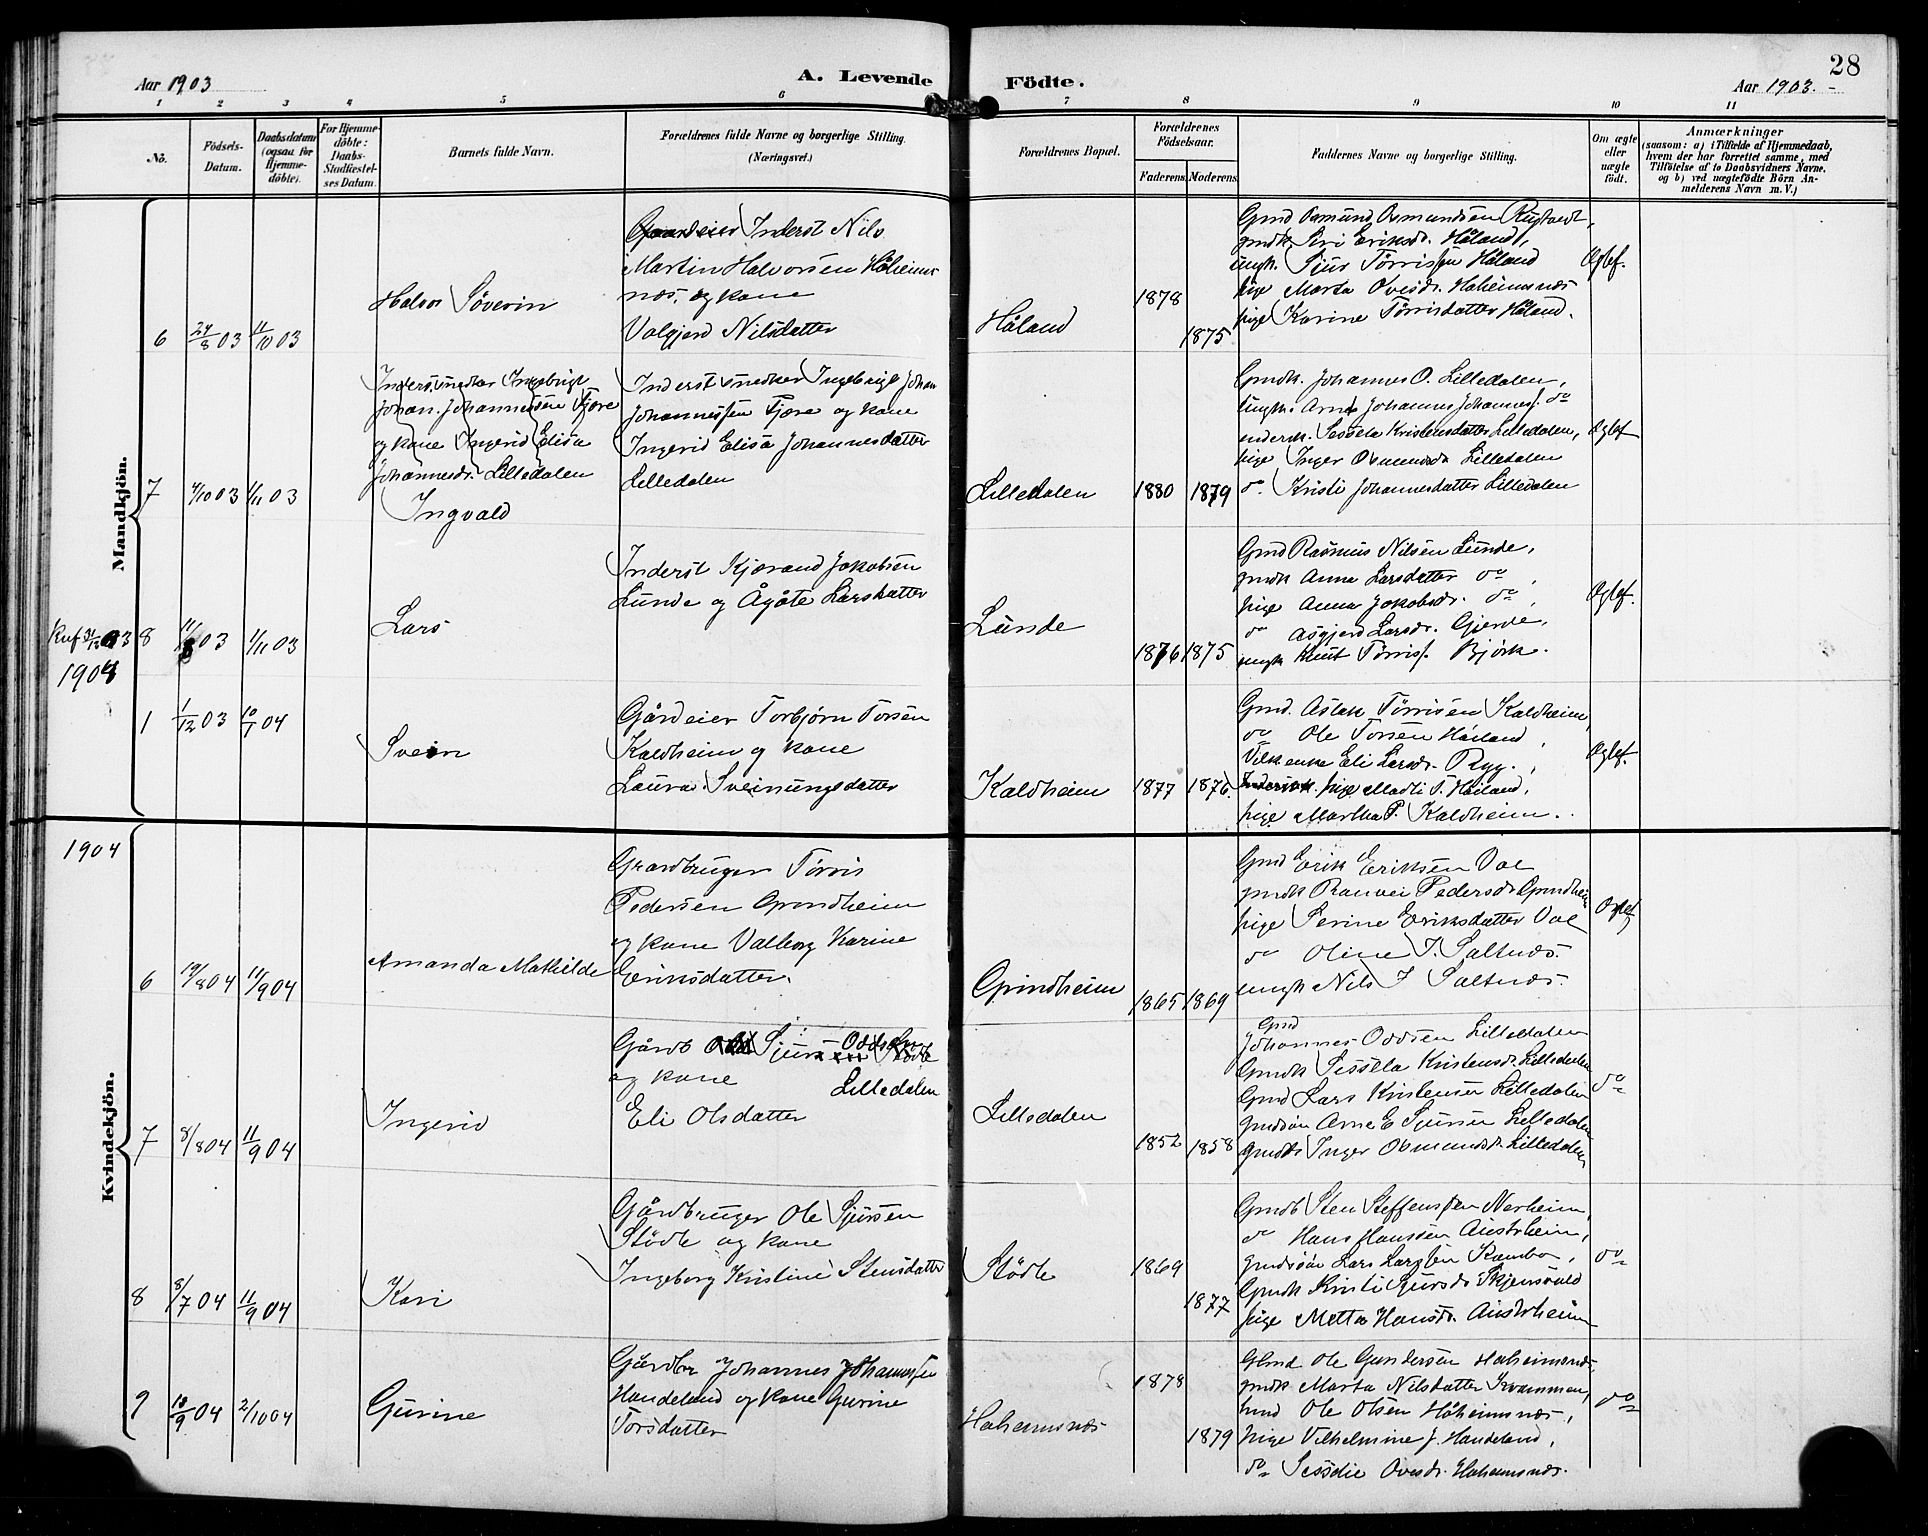 28
Aar 1903
A. Levende
Födte.
Aar 1903.
1 2 3 4 5 6 7 8 9 10 11
No.
Födsels-
Datum.
Daabsdatum
(ogsaa for
Hjemme-
döbte).
For Hjemme-
döbte:
Daabs-
Stadfæstel-
ses Datum.
Barnets fulde Navn.
Forældrenes fulde Navne og borgerlige Stilling.
(Næringsvei.)
Forældrenes Bopæl.
Forældrenes
Födselsaar.
Faderens. Moderens.
Faddernes Navne og borgerlige Stilling.
Om ægte
eller
uægte
født.
Anmærkninger
(saasom: a) i Tilfælde af Hjemmedaab,
hvem der har forrettet samme, med
Tilföielse af to Daabsvidners Navne,
og b) ved uægtefödte Börn An-
melderens Navn m. V.)
Mandkjön.
6
24/8 03
11/10 03
Halvor Söverin
Gaardeier Inderst Nils
Martin Halvorsen Håheims
næs, og kone
Valgjerd Nilsdatter
Håland
1878
1875
Gmd Osmund Osmundsen
gmdk Siri Eriksdr. Håland,
ungk. Sjur Tørrissen Håland
pige Marta Ovesdr. Haheimsnæs
pige Karine Tørrisdatter Håland.
Ogtef.
7
4/10 03
1/11 03
Inderst snedker Ingebrigt
Johan Johannessen Fjære
og kone Ingerid Elisa
Johannesdr. Lilledalen
Ingvald
Inderst snedker Ingebrigt Johan
Johannessen Fjære og kone
Ingerid Elisa Johannesdatter
Lilledalen
Lilledalen
1880
1879
Gmdk. Johannes O. Lilledalen,
Ungk. Arne Johannes Johannes. do
Sessela Kristensdatter Lilledalen,
pige Inger Osmundsdr Lilledalen
do. Kristi Johannesdatter Lilledalen
Ogtef
Kuf 31/12 03
8
03
1/11 03
Lars
Inderst Kjærand Jakobsen
Lunde og Ågåte Larsdatter
Lunde
1876
1875
Gmd Rasmus Nilsen Lunde,
gmdk Anna Larsdatter do,
pige Anna Jakobsdr. do,
do Asgjerd Larsdr. Gjerde,
ungk Knut Tørris. Bjørk.
Ogtef.
1904
1
1/12 03
10/1 04
Svein
Gårdeier Torbjørn Torsen
Kaldheim og kone
Laura Sveinungsdatter
Kaldheim
1877
1876.
Gmd. Aslak Tørrisen Kaldheim,
do Ole Torsen Håland,
Eli Larsdr. Ryg.,
pige Madli T. Håiland,
pige Martha P. Kaldheim.
Ogtef.
Kvindekjön.
1904
6
19/8 04
11/9 04
Amanda Mathilde
Graardbruger Tørris
Pedersen Grindheim
og kone Valborg Karine
Grindheim
1865
1869
Gmd Erik Eriksen Vae
gmdk Ranvei Pedersdr Grindheim
pige Serine Eriksdatter Vae
do Oline J. Saltnæs.
ungk Nils J Saltnæs.
Ogtef
7
8/8 04
11/9 04
Ingerid
Gårdb Sjur Oddsen
og kone Lilledalen
Eli Olsdatter
Lilledalen
1852
1858
Gmd
Johannes Oddsen Lilledalen
Gmdk Sessela Kristensdr. Lilledalen
Gmd Lars Kristensen Lilledalen
gmdsøn Arne E Sjursen Lilledalen
Inger Osmundsdr. Lilledalen
do
8
8/7 04
11/9 04
Kari
Gårdbruger Ole Sjursen
Stödle og kone
Ingeborg Kristine Stensdatter
Stödle
1869
1877
Gmdb Sten Steffenssen Nerheim,
do Hans Hanssen Austrheim,
gmdssøn Lars Larssen Rambo,
Gmdk Kristi Sjursdr Skjensvold
pige Metta Hansdr. Austrheim
do
9
10/9 04
2/10 04
Gurine
Gårdbr Johannes Johannessen
Handeland og kone Gurine
Torsdatter
Haheimsnæs
1878
1879
Gbmd. Ole Gundersen Haheimsnæs,
gmdk Marta Nilsdatter Kvammen,
Ole Olsen Håheimsnæs,
pige Vilhelmine J. Handeland,
do Sessdie Ovesdr. Haheimsnæs.
do